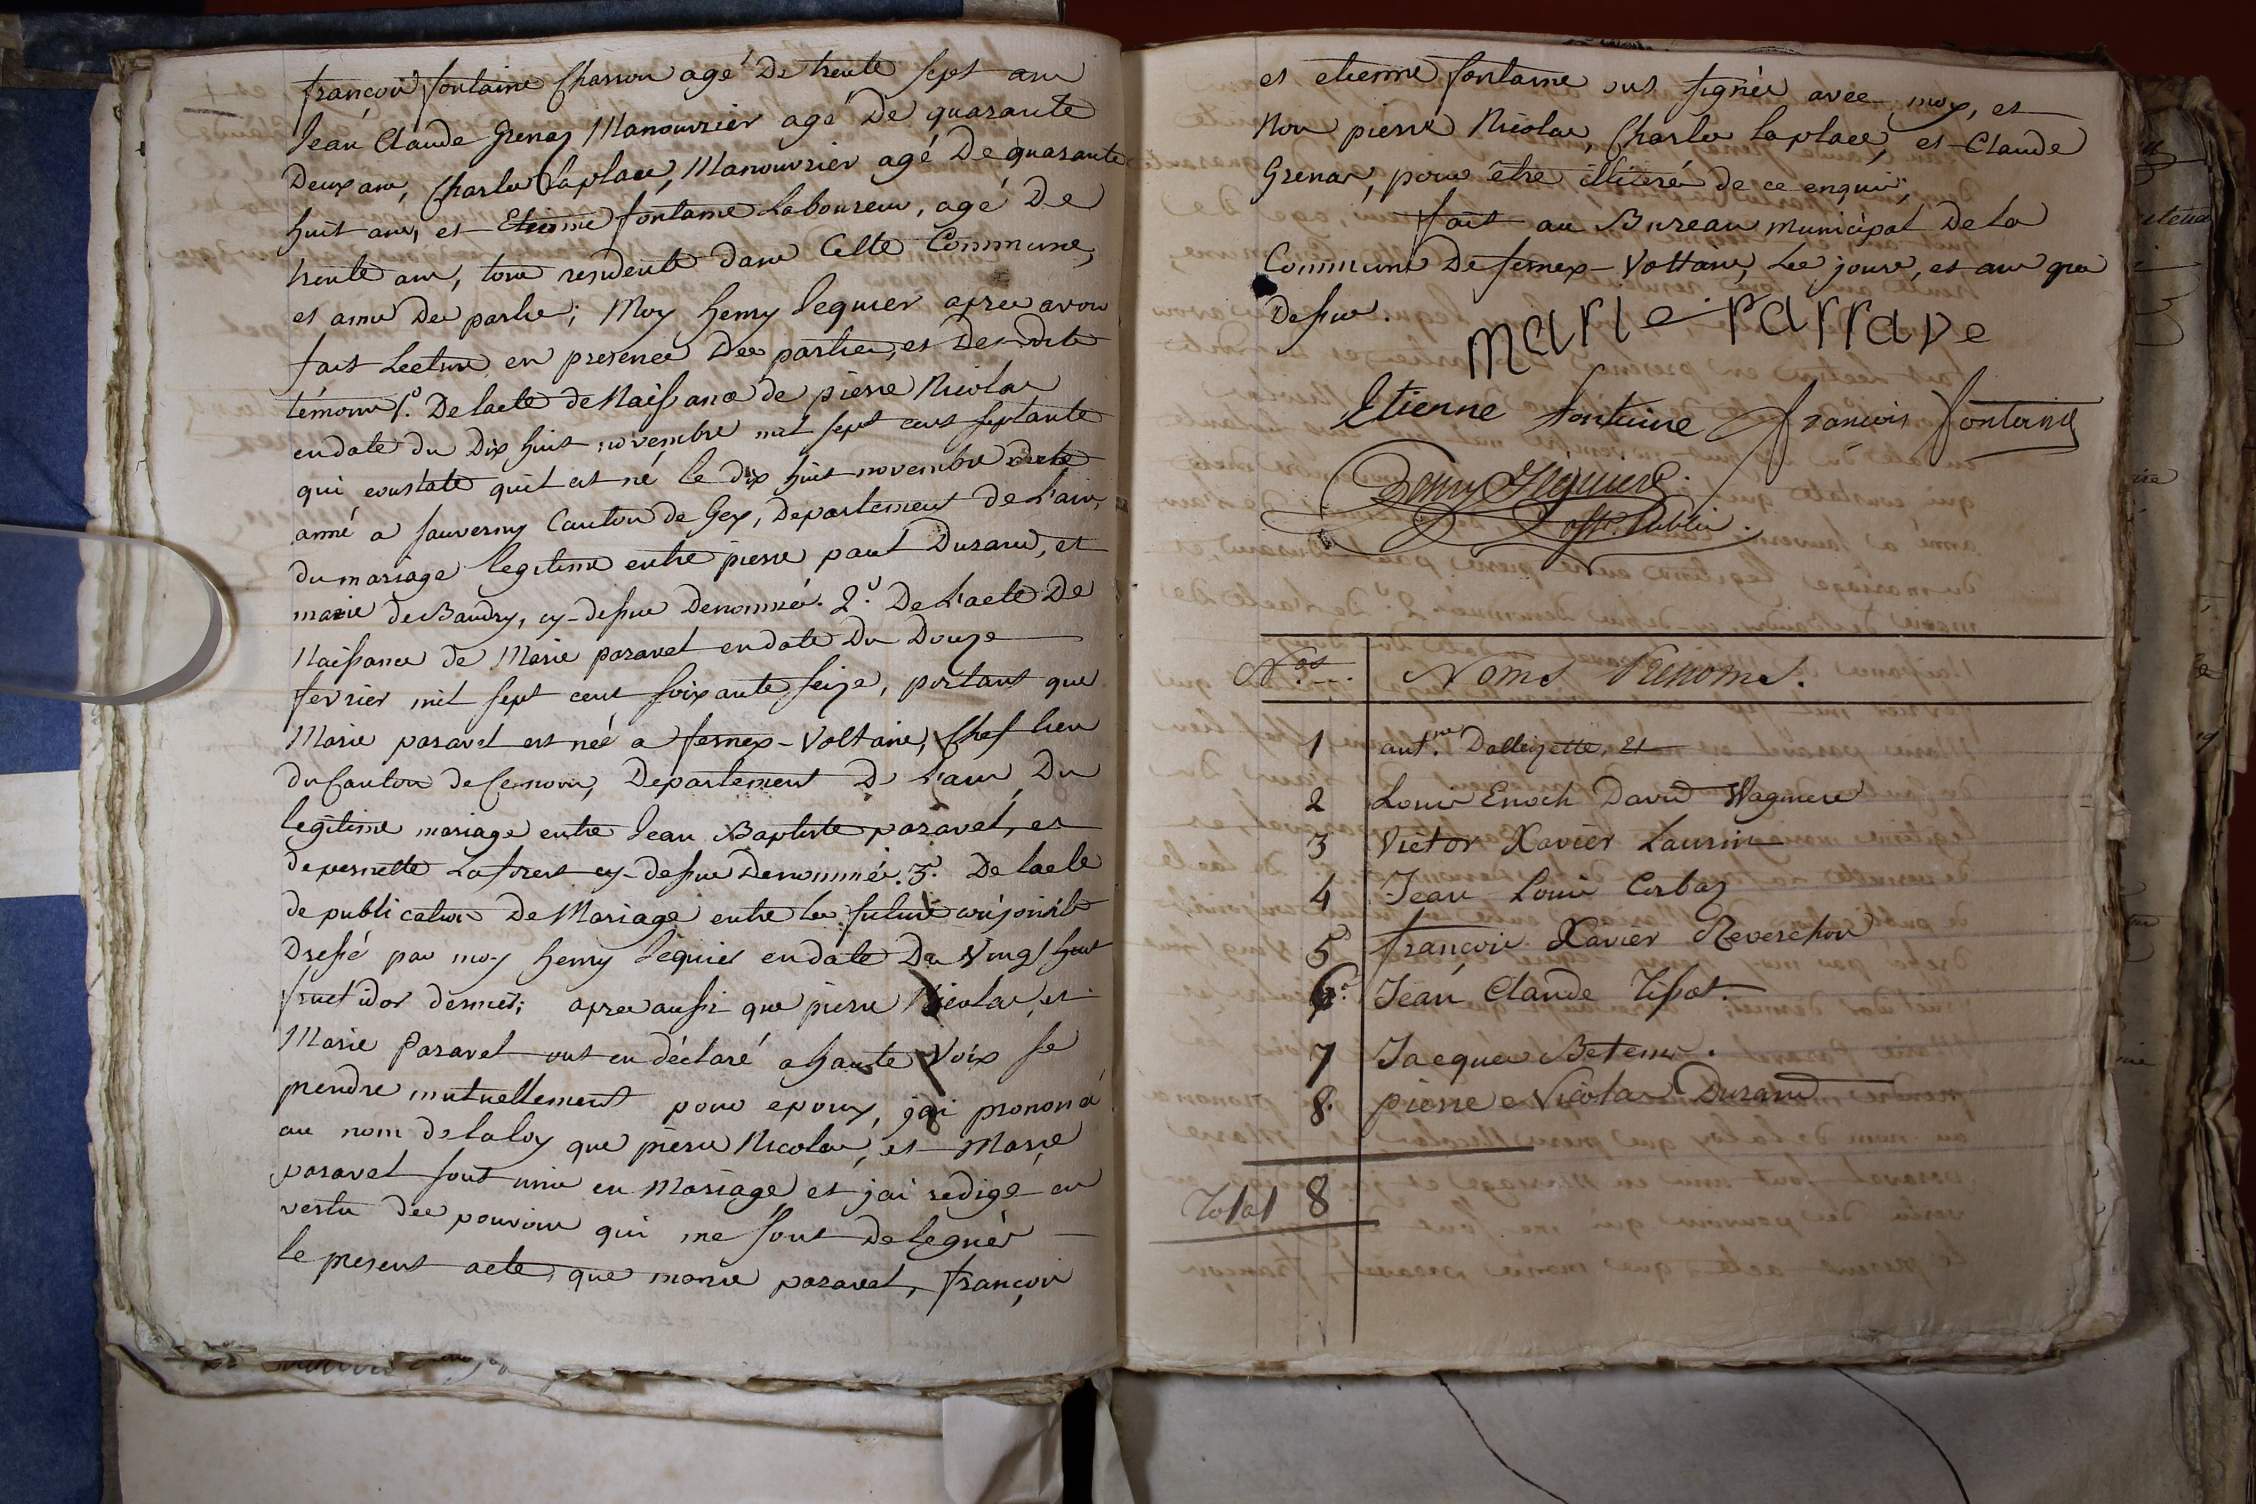 françois fontaine Charron agé De trente sept ans
Jean Claude Grenaz Manouvrier agé De quarante
Deux ans, Charles Laplace, Manouvrier agé De quarante
huit ans, et Etienne fontaine Laboureur, agé De
trente ans, tous residents dans Cette Commune,
et amis des parties; Moy henry Sequier apres avoir
fait Lecture en presence Des parties, et Desdits
témoins 1.° De lacte de Naissance de pierre Nicolas
en date du Dix huit novembre mil sept cent septante
qui constate quil est né le dix huit novembre
année a Sauverny Canton de Gex, Departement de L'ain,
du mariage legitime entre pierre paul Durand, et
marie de Baudry, cy-dessus Denommés. 2.° De L'acte De
Naissance de Marie paravel en date Du Douze
fevrier mil sept cent soixante seize, portant que
Marie paravel est née a fernex-Voltaire, Chef lieu
du Canton de Ce nom, Departement De L'ain, Du
legitime mariage entre Jean Baptiste paravel, et
de pernette Laforest cy-dessus Denommés. 3.° De lacte
de publication De Mariage entre les futurs conjoints
Dressé par moy henry Sequier en date Du Vingt huit
fructidor dernier; apres aussi que pierre Nicolas, et
Marie Paravel ont eu déclaré a haute Voix se
prendre mutuellement pour epoux, jai prononcé
au nom de la loy que pierre Nicolas, et Marie
paravel sont unis en Mariage et jai redigé en
vertu des pouvoirs qui me sont delegués
le present acte, que marie paravel, françois
et etienne fontaine ont signés avec moy, et
Non pierre Nicolas, Charles Laplace, et Claude
Grenaz, pour être illiterés de ce enquis;
fait au Bureau municipal De La
Commune De fernex-Voltaire, Les jours, et an que
Dessus.
Marie Parrave
Etienne fontaine françois fontaine
Henry Sequier
off. Public.
N.os Noms Prenoms.
1 ant.ne Dalleizette, et
2 Louis Enoch David Wagniere
3 Victor Xavier Laurin
4 Jean Louis Corbaz
5 françois Xavier Reverchon
6 Jean Claude Tissot.
7 Jacques Betems.
8. pierre Nicolas Durand
Total 8